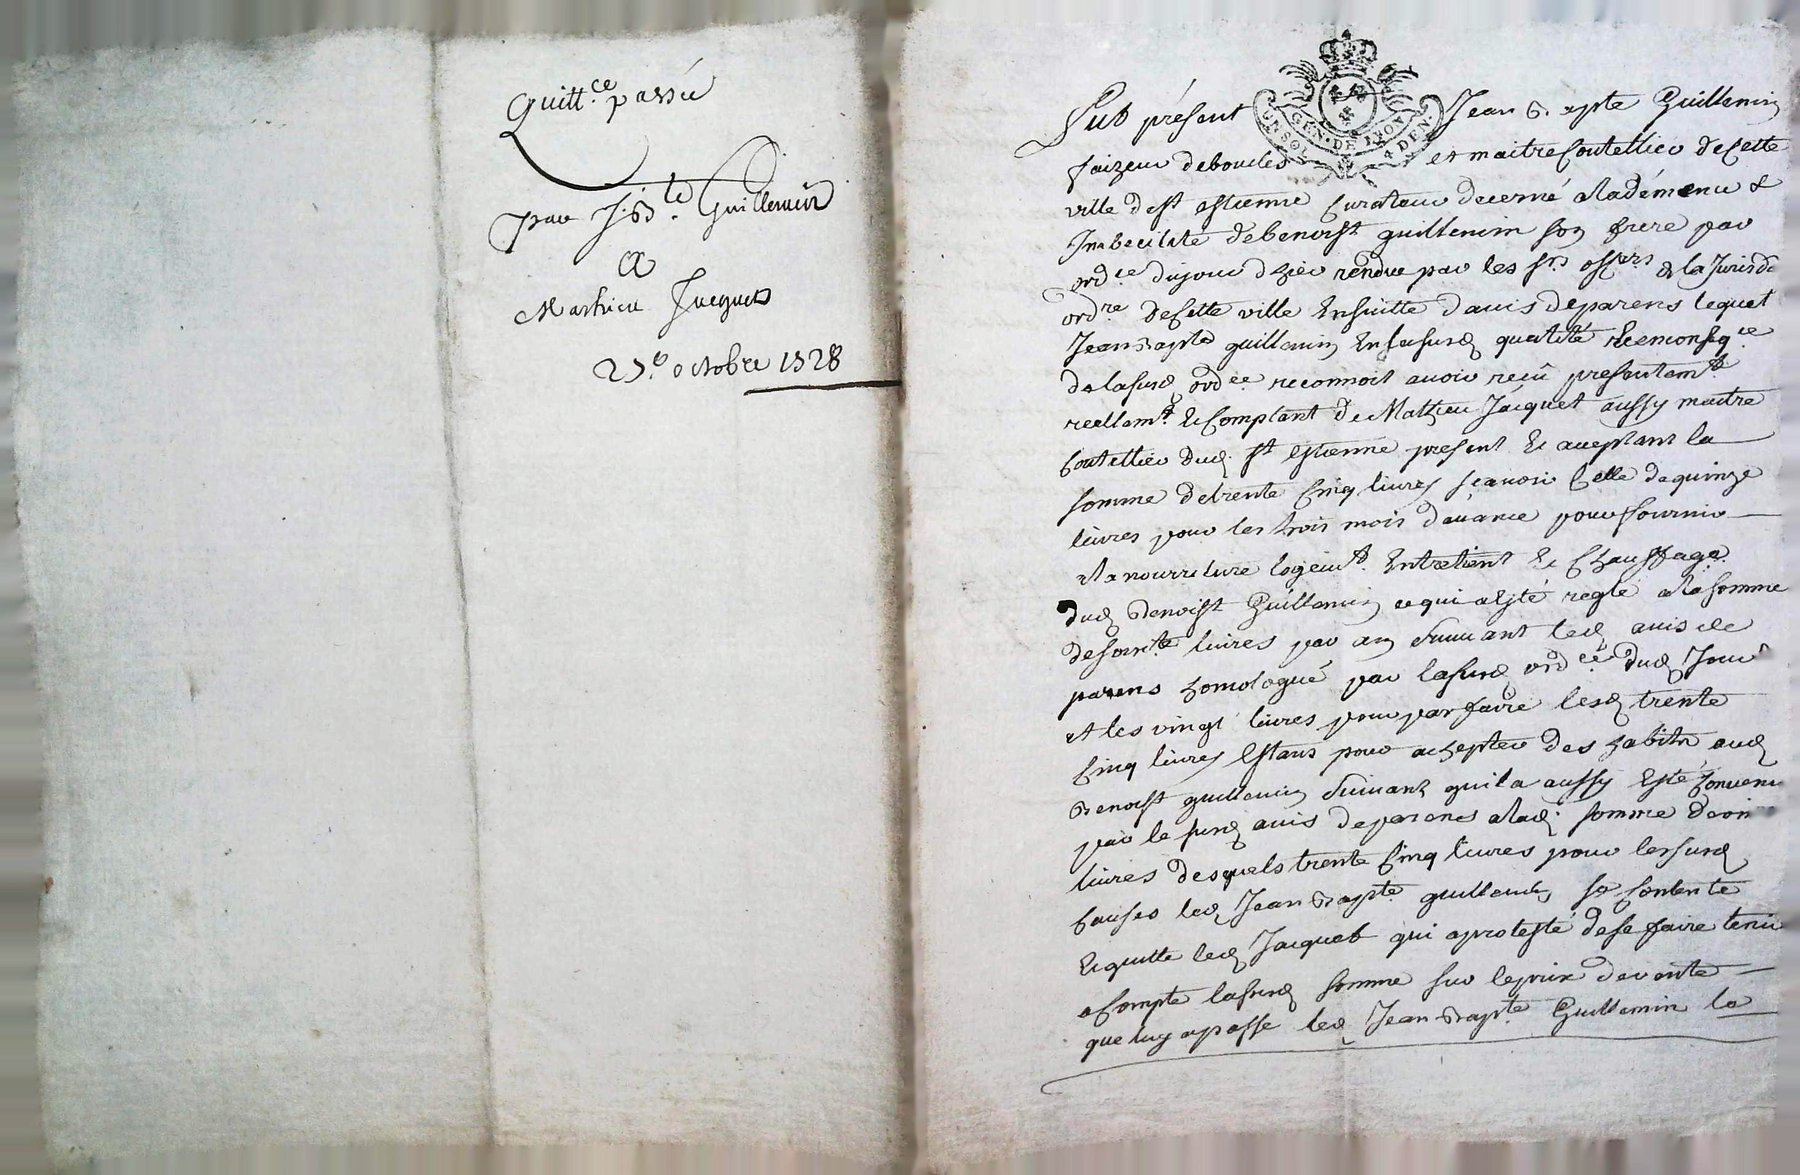 Quitt.ce passée
par J.B.te Guillemin
a
Mathieu Jacquet
25.e octobre 1728
GEN. DE LYON
UN SOL 4 DEN.
Fut présent Jean Bapte Guillemin
faizeur de boucles et maitre Coutellier de Cette
ville de St estienne Curateur decerné a la démence &
Imbecilité de benoist guillemin son frere par
ordce du jour dhier rendue par les srs offrs de la Jurisdon
ordre de Cette ville Ensuitte davis de parens lequel
Jean Bapte guillemin En sa susd qualité
de la susd ordce reconnoit avoir reçû presentemt
reellemt & Comptant de Mathieu Jacquet aussy maitre
Coutellier dud. St estienne present & aceptant la
somme de trente Cinq livres sçavoir Celle de quinze
livres pour les trois mois d'avance pour fournir
a la nourriture logemt. Entretient & Chauffage
dud Benoist Guillemin ce qui a esté reglé a la somme
de soixte livres par an suivant led avis de
parens homologué par la susd ordce dud Jour
et les vingt livres pour parfaire lesd trente
Cinq livres Estans pour achepter des habits aud
Benoist guillemin suivant quil a aussy Esté Convenu
par le susd avis de parens a lad. somme de
livres desquels trente Cinq livres pour les susd
Causes led Jean Bapte guillemin se Contente
& quitte led Jacquet qui a protesté de se faire tenir
a Compte la susd somme sur le prix de vente
que luy a passe led Jean Bapte Guillemin le